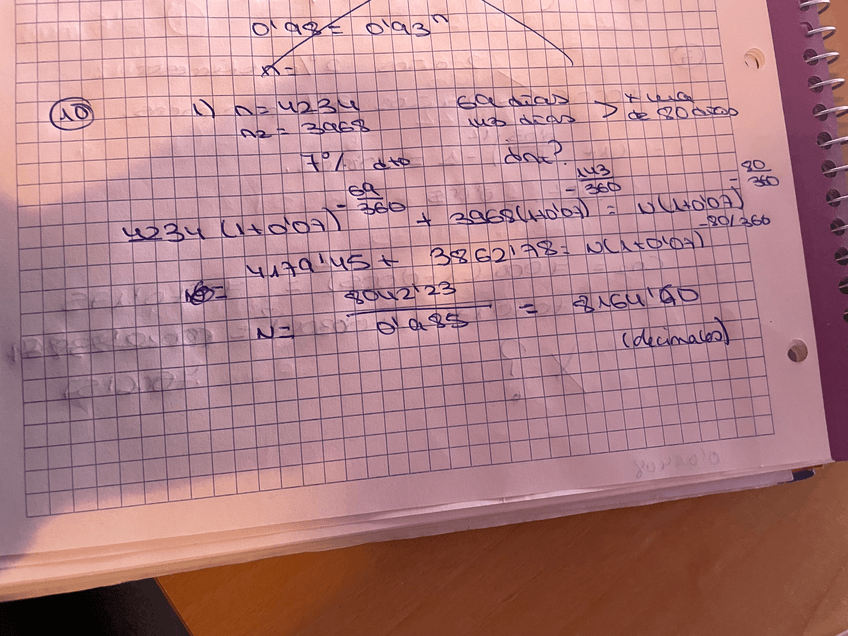 0'98 = 0'93^n
n =
10 1) n = 4234 69 días > + una
n2 = 3968 143 días de 80 días
7% dto
4234 (1+0'07)^-69/360 + 3968(1+0'07)^-143/360 = N(1+0'07)^-80/360
4179'45 + 3862'78 = N(1+0'07)^-80/360
N = 8042'23 / 0'985 = 8164'60
(decimales)